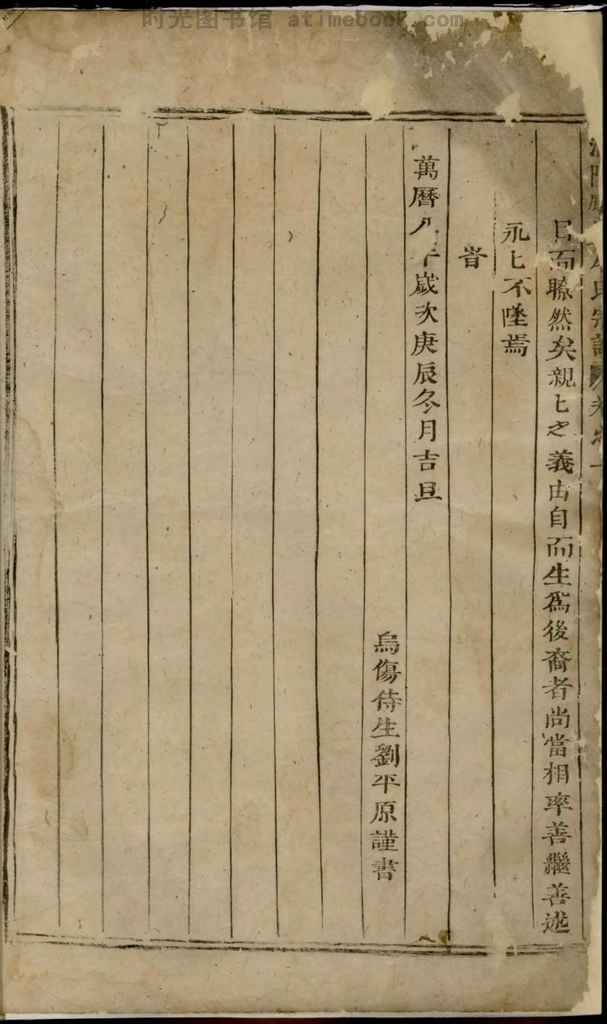 时光图书馆 atimebook.com
氏宗譜 卷之一
目而瞭然矣親匕之義由自而生爲後裔者尚當相率善繼善述
永匕不墜焉
旹
萬曆八年歲次庚辰冬月吉旦
烏傷侍生劉平原謹書